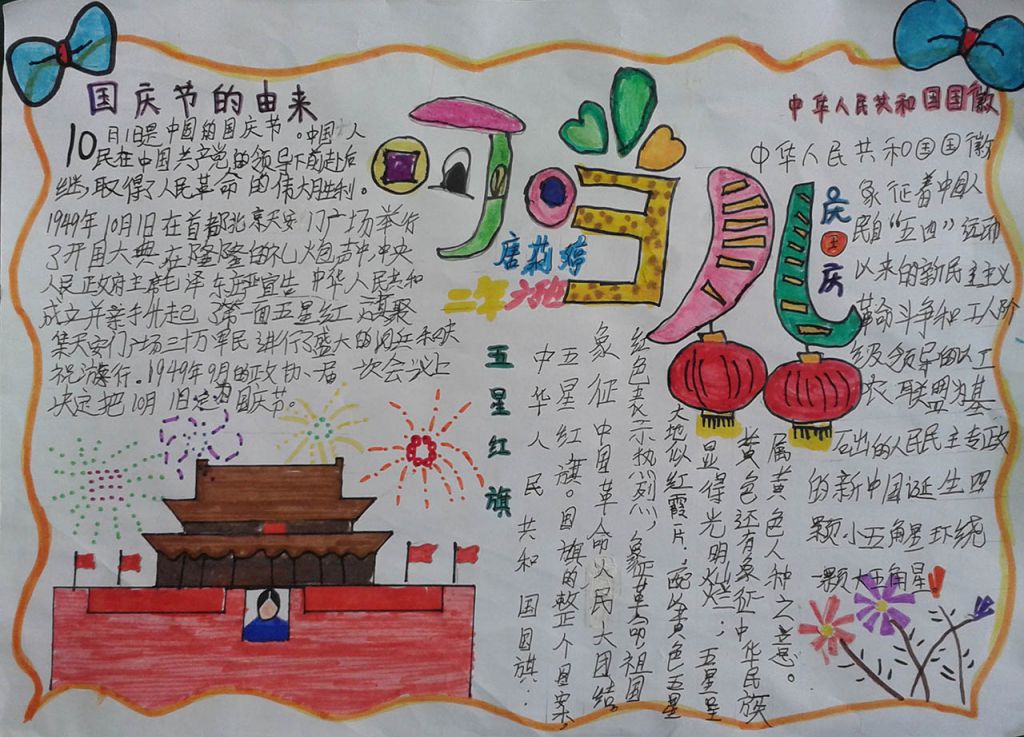 国庆节的由来
10月1日是中国的国庆节。中国人
民在中国共产党的领导下前赴后
继,取得了人民革命的伟大胜利。
1949年10月1日在首都北京天安门广场举行
了开国大典,在隆隆的礼炮声中,中央
人民政府主席毛泽东严宣生中华人民共和
成立并亲手升起了第一面五星红
聚
集天安门广场三十万军民进行了盛大的阅兵和庆
祝游行.1949年9月的政协一届一次会议上
决定把10月1日定为国庆节。
唐莉婷
二年六班
庆国庆
五星红旗
中华人民共和国国旗:
五星红旗。国旗的整个图案,
象征中国革命人民大团结
红色表示热烈,象征革命,祖国
大地似红霞一片.
黄色五星
显得光明灿烂;五星呈
黄色还有象征中华民族
属黄色人种之意。
中华人民共和国国国徽
中华人民共和国国国徽
象征着中国人
民自“五四”运动
以来的新民主主义
革命斗争和工人阶
级领导的以工
农联盟为基
石出的人民民主专政
的新中国诞生四
颗小五角星环绕
一颗大五角星!